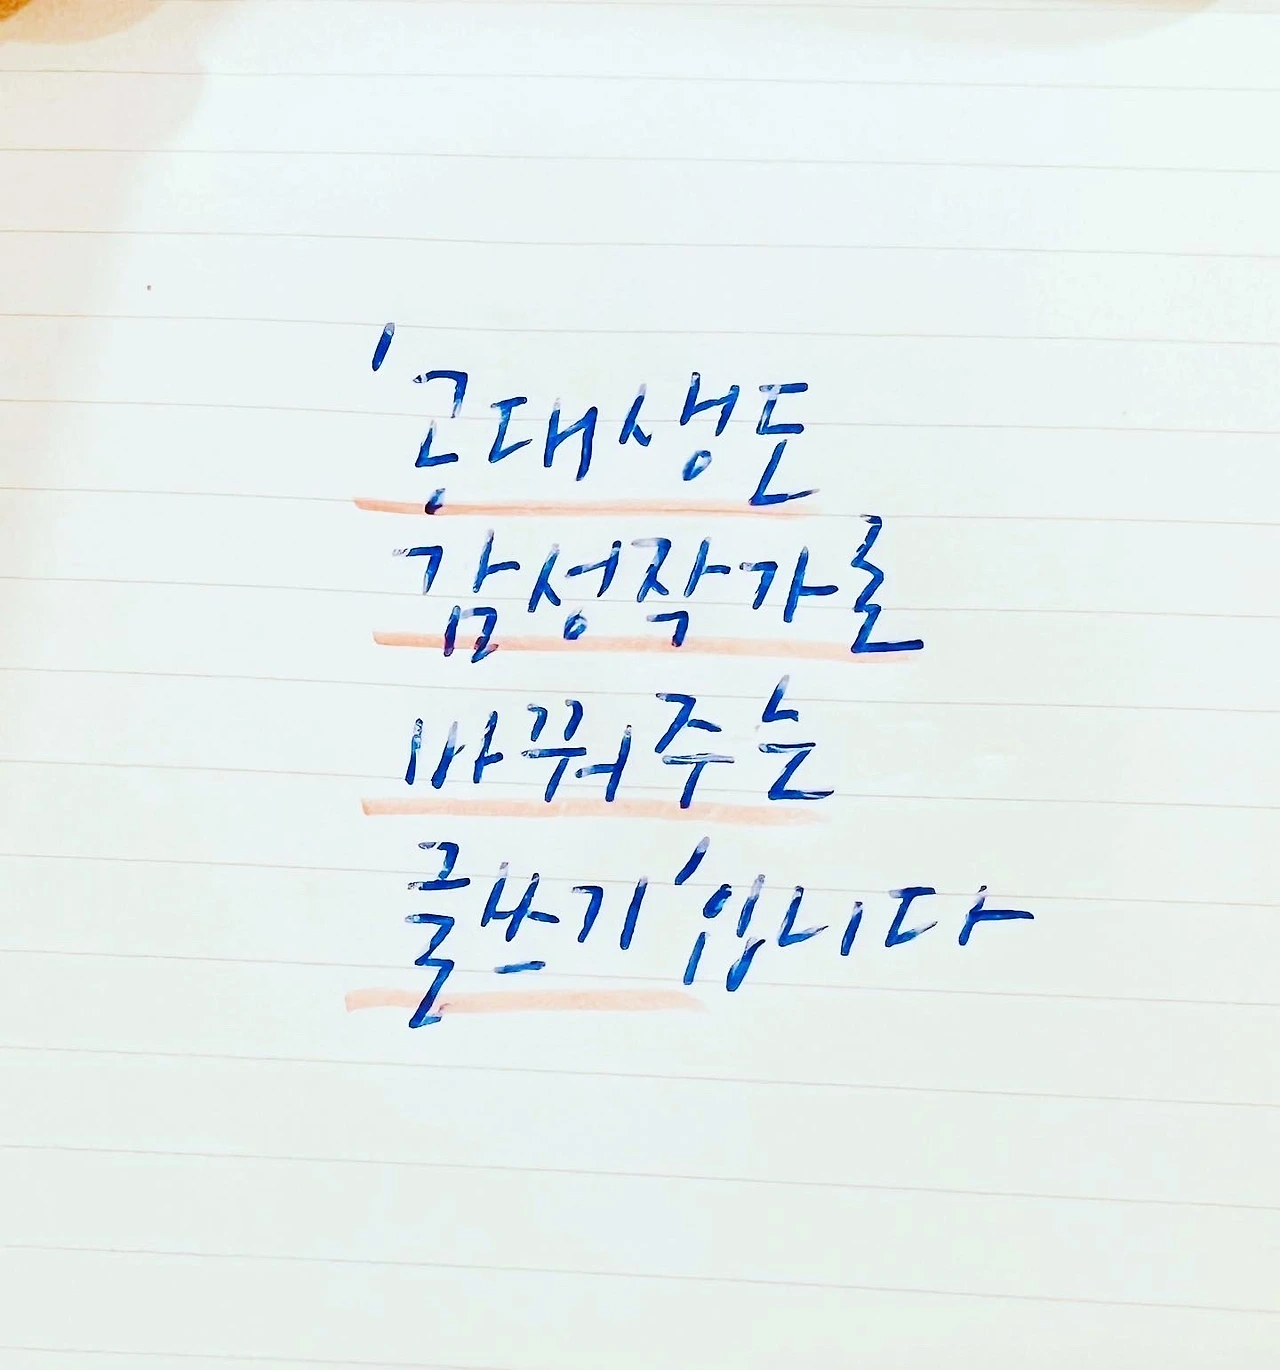 '공대생도
감성작가로
바꿔주는
글쓰기'입니다